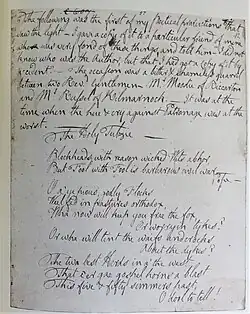 The following was the first of my Poetical productions that
saw the light. I gave a copy of it to a particular friend of mine
who was very fond of these things and told him I did not
know who was the Author, but that I had got a copy of it by
accident. The occasion was a bitter & shameless quarrel
between two Revd. Gentlemen Mr. Moodie of Riccarton
and Mr. Russel of Kilmarnock. It was at the
time when the hue & cry against Patronage was at the
worst.
The Holy Tulzie
Blockheads with reason wicked Wits abhor
But Fool with Fool is barbarous civil war
Pope
O a' ye pious, godly Flocks
Weel fed in pastures orthodox
Wha now will keep you frae the fox
Or worryin tykes?
Or who will tent the waifs and crocks
About the dykes?
The two best Herds in a' the west
That e'er gae gospel horns a blast
This five & fifty summers past
O dool to tell!